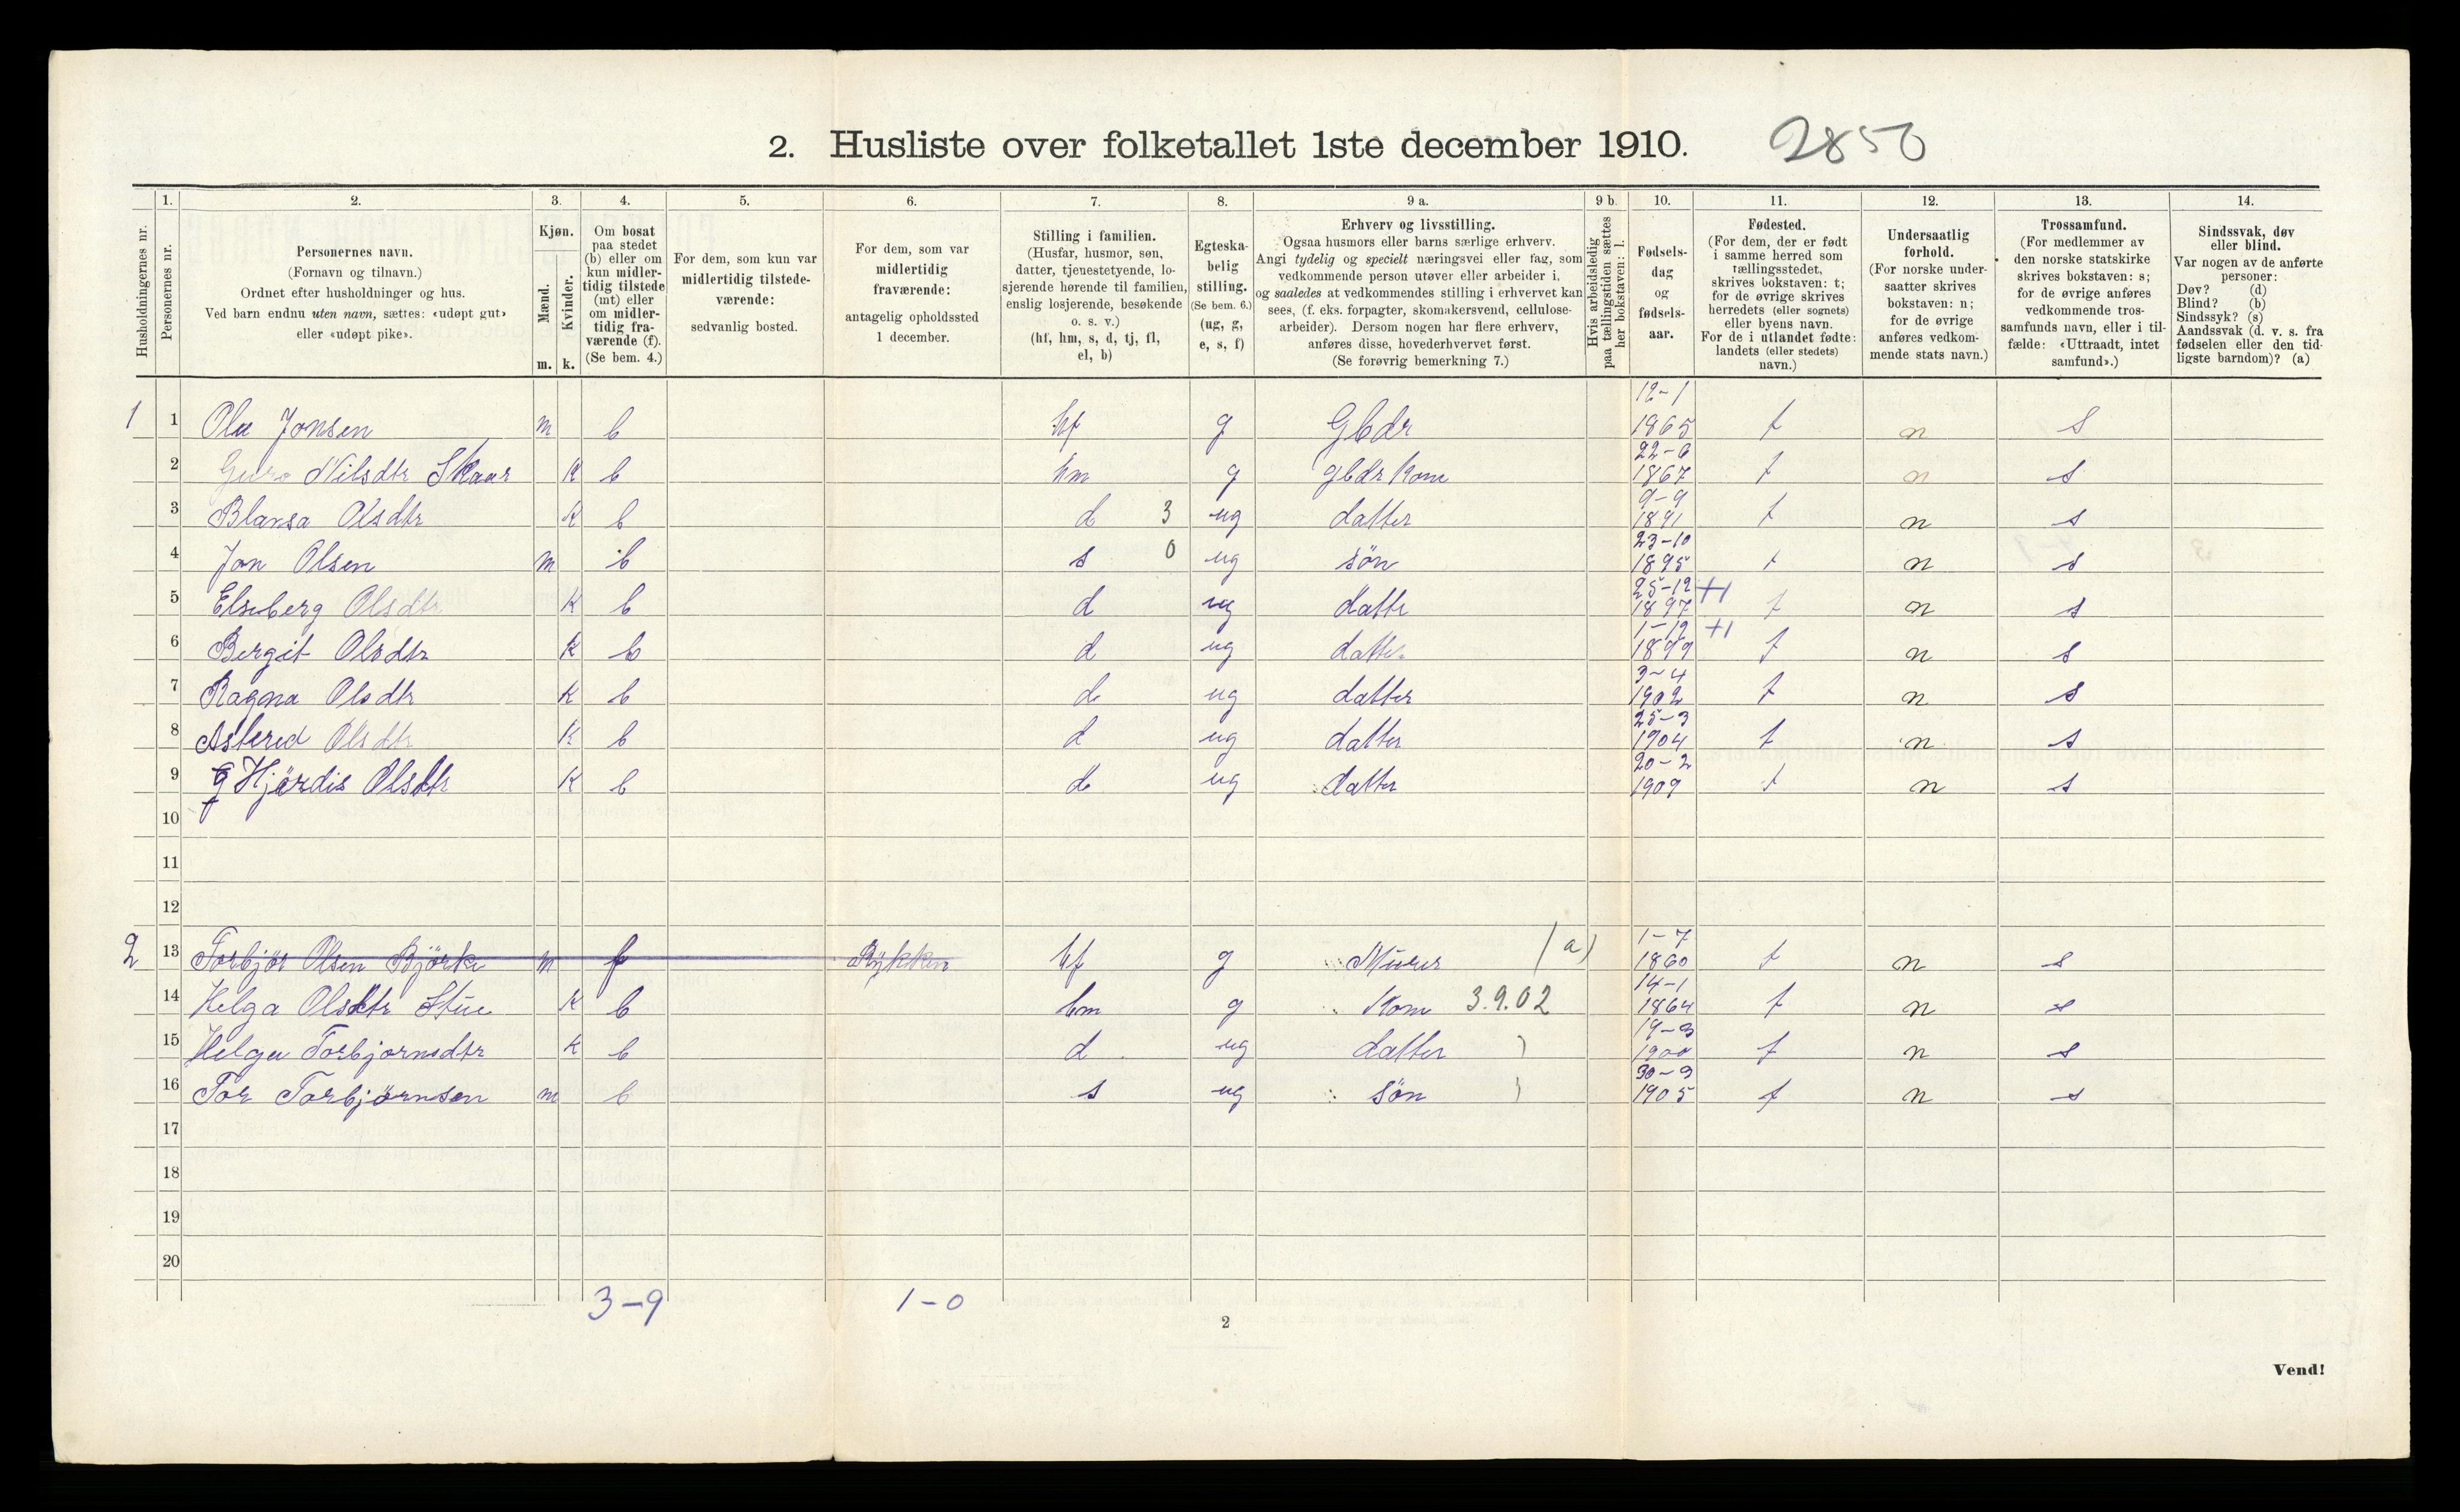 2. Husliste over folketallet 1ste december 1910. 2850
Husholdningernes nr.
1. Personernes nr.
2. Personernes navn.
(Fornavn og tilnavn.)
Ordnet efter husholdninger og hus.
Ved barn endnu uten navn, sættes: «udøpt gut»
eller «udøpt pike».
3. Kjøn.
Mænd. m.
Kvinder. k.
4. Om bosat
paa stedet
(b) eller om
kun midler-
tidig tilstede
(mt) eller
om midler-
tidig fra-
værende (f).
(Se bem. 4.)
5. For dem, som kun var
midlertidig tilstede-
værende:
sedvanlig bosted.
6. For dem, som var
midlertidig
fraværende:
antagelig opholdssted
1 december.
7. Stilling i familien.
(Husfar, husmor, søn,
datter, tjenestetyende, lo-
sjerende hørende til familien,
enslig losjerende, besøkende
o. s. v.)
(hf, hm, s, d, tj, fl,
el, b)
8. Egteska-
belig
stilling.
(Se bem. 6.)
(ug, g,
e, s, f)
9 a. Erhverv og livsstilling.
Ogsaa husmors eller barns særlige erhverv.
Angi tydelig og specielt næringsvei eller fag, som
vedkommende person utøver eller arbeider i,
og saaledes at vedkommendes stilling i erhvervet kan
sees, (f. eks. forpagter, skomakersvend, cellulose-
arbeider). Dersom nogen har flere erhverv,
anføres disse, hovederhvervet først.
(Se forøvrig bemerkning 7.)
9 b. Hvis arbeidsledig
paa tællingstiden sættes
her bokstaven: l.
10. Fødsels-
dag
og
fødsels-
aar.
11. Fødested.
(For dem, der er født
i samme herred som
tællingsstedet,
skrives bokstaven: t;
for de øvrige skrives
herredets (eller sognets)
eller byens navn.
For de i utlandet fødte:
landets (eller stedets)
navn.)
12. Undersaatlig
forhold.
(For norske under-
saatter skrives
bokstaven: n;
for de øvrige
anføres vedkom-
mende stats navn.)
13. Trossamfund.
(For medlemmer av
den norske statskirke
skrives bokstaven: s;
for de øvrige anføres
vedkommende tros-
samfunds navn, eller i til-
fælde: «Uttraadt, intet
samfund».)
14. Sindssvak, døv
eller blind.
Var nogen av de anførte
personer:
Døv? (d)
Blind? (b)
Sindssyk? (s)
Aandssvak (d. v. s. fra
fødselen eller den tid-
ligste barndom)? (a)
1 1 Ola Jonsen m b hf g Gbdr 12-1 1865 t n s
2 Guro Nilsdtr Skaar K b hm g gbdr kone 22-6 1867 t n s
3 Olsdtr K b d 3 ug datter 9-9 1891 t n s
4 Jon Olsen m b s 0 ug søn 23-10 1895 t n s
5 Elseberg Olsdtr K b d ug datte 25-12 1897 +1 t n s
6 Bergit Olsdtr K b d ug datter 1-12 1899 +1 t n s
7 Ragna Olsdtr K b d ug datter 3-4 1902 t n s
8 Astered Olsdtr K b d ug datter 25-3 1904 t n s
9 Hjördis Olsdtr K b d ug datter 20-2 1909 t n s
10
11
12
2 13 Torbjør Olsen Björke m f Rykken hf g Murer (a) 1-7 1860 t n s
14 Helga Olsdtr Stue K b hm g Kone 3.9.02 14-1 1864 t n s
15 Helga Torbjornsdtr K b d ug datter 19-3 1900 t n s
16 Tor Torbjörnsen m b s ug søn 30-9 1905 t n s
17
18
19
20
3-9 1-0
2
Vend!